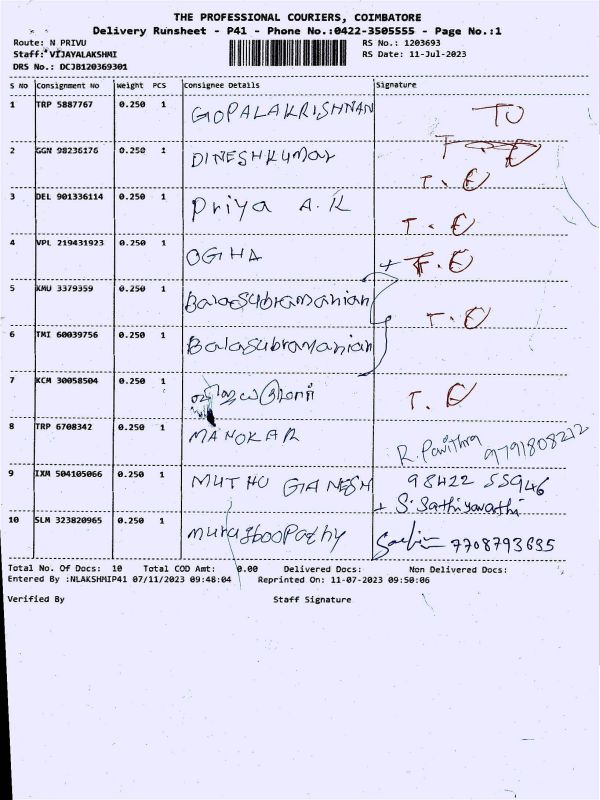 THE PROFESSIONAL COURIERS, COIMBATORE
Delivery Runsheet - P41 - Phone No.:0422-3505555 - Page No.:1
Route: N PRIVU RS No.: 1203693
Staff: VIJAYALAKSHMI RS Date: 11-Jul-2023
DRS No.: DCJB120369301
S No Consignment No Weight PCS Consignee Details Signature
1 TRP 5887767 0.250 1 GOPALAKRISHNAN TO
2 GGN 98236176 0.250 1 DINESHKUMAR
T. E
3 DEL 901336114 0.250 1 Priya A.K T. E
4 VPL 219431923 0.250 1 OGIHA
5 KMU 3379359 0.250 1 Balasubramanian T. E
6 TMI 60039756 0.250 1 Balasubramanian
7 KCM 30058504 0.250 1 T. E
8 TRP 6708342 0.250 1 MANOKAR R. Pavithra 9791808212
9 IXM 504105066 0.250 1 MUTHU GANESH 98422 55946
+ S. Sathiyavathi
10 SLM 323820965 0.250 1 murugboopathy 7708793635
Total No. Of Docs: 10 Total COD Amt: 0.00 Delivered Docs: Non Delivered Docs:
Entered By :NLAKSHMIP41 07/11/2023 09:48:04 Reprinted On: 11-07-2023 09:50:06
Verified By Staff Signature